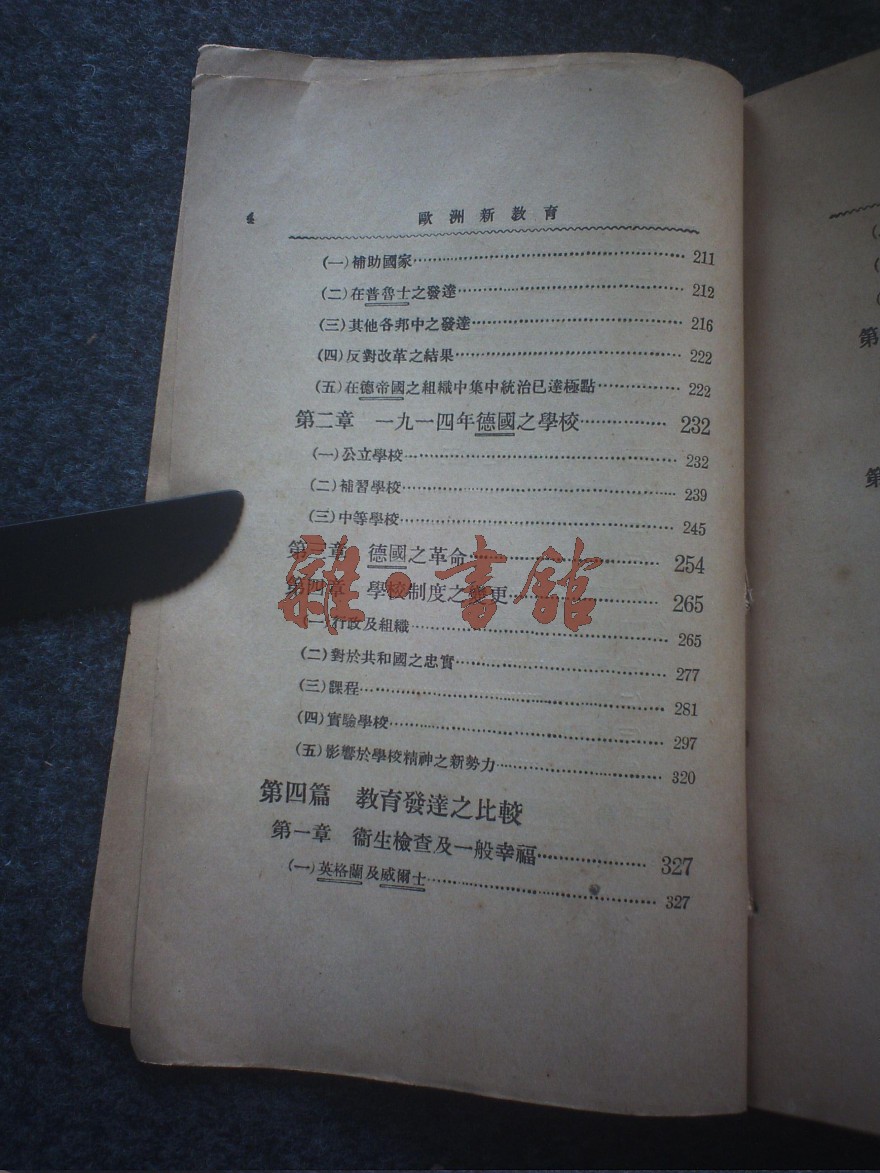 4 歐洲新教育
(一)補助國家 211
(二)在普魯士之發達 212
(三)其他各邦中之發達 216
(四)反對改革之結果 222
(五)在德帝國之組織中集中統治已達極點 222
第二章 一九一四年德國之學校 232
(一)公立學校 232
(二)補習學校 239
(三)中等學校 245
第三章 德國之革命 254
第四章 學校制度之變更 265
(一)行政及組織 265
(二)對於共和國之忠實 277
(三)課程 281
(四)實驗學校 297
(五)影響於學校精神之新勢力 320
第四篇 教育發達之比較
第一章 衞生檢查及一般幸福 327
(一)英格蘭及威爾士 327
雜·書館
第
第